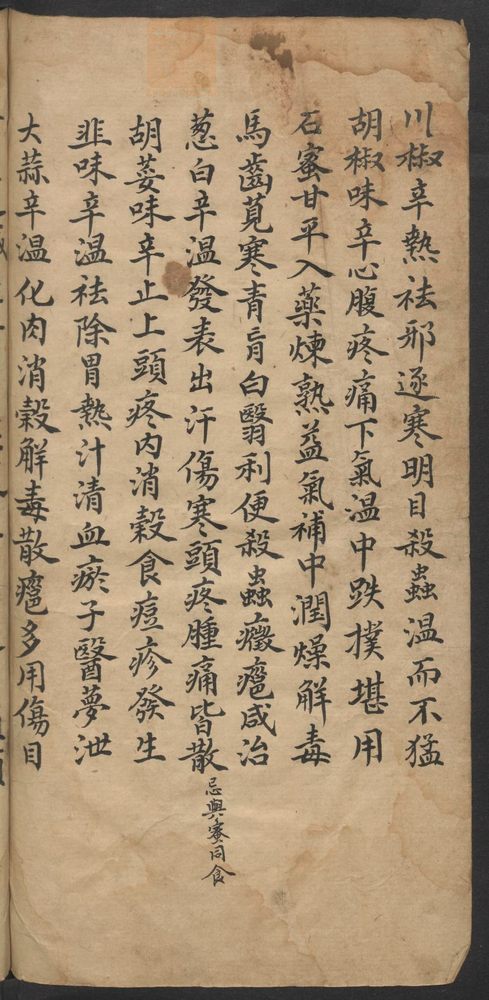 川椒辛熱祛邪逐寒明目殺蟲温而不猛
胡椒味辛心腹疼痛下氣温中跌撲堪用
石蜜甘平入藥煉熟益氣補中潤燥解毒
馬齒莧寒青盲白翳利便殺蟲癥癰咸治
葱白辛温發表出汗傷寒頭疼腫痛皆散忌與蜜同食
胡荽味辛止上頭疼内消穀食痘疹發生
韭味辛温祛除胃熱汁清血瘀子醫夢泄
大蒜辛温化肉消穀解毒散癰多用傷目